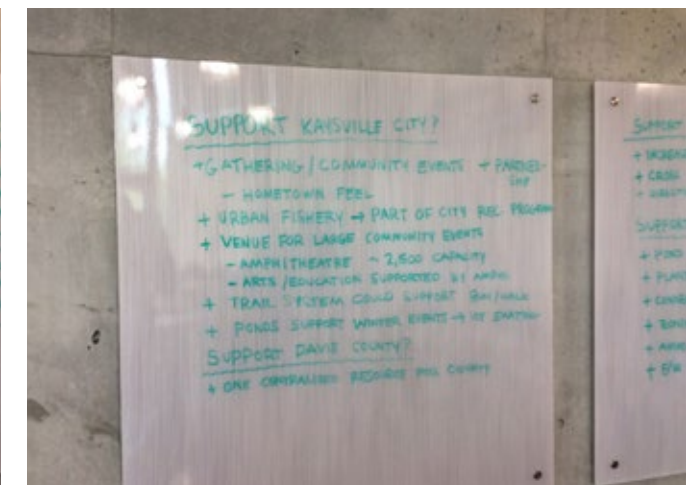 SUPPORT KAYSVILLE CITY?
+ GATHERING / COMMUNITY EVENTS + PARTNER-
SHIP
- HOMETOWN FEEL
+ URBAN FISHERY → PART OF CITY REC PROGRAM
+ VENUE FOR LARGE COMMUNITY EVENTS
- AMPHITHEATRE ~ 2,500 CAPACITY
- ARTS / EDUCATION SUPPORTED BY
+ TRAIL SYSTEM COULD SUPPORT RUN/WALK
+ PONDS SUPPORT WINTER EVENTS → ICE SKATING
SUPPORT DAVIS COUNTY?
+ ONE CENTRALIZED RESOURCE FOR COUNTY
SUPPORT
+ CROSS
SUPPORT
+ POND